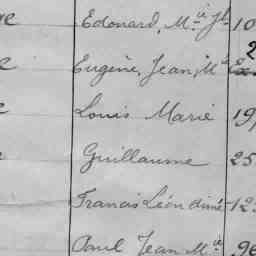 Edouard, M.ie J.h 10
2
e Eugène, Jean, M.ie
e Louis Marie 19
Guillaume 25
Francis Léon Aimé 12
Paul Jean M.ie 96